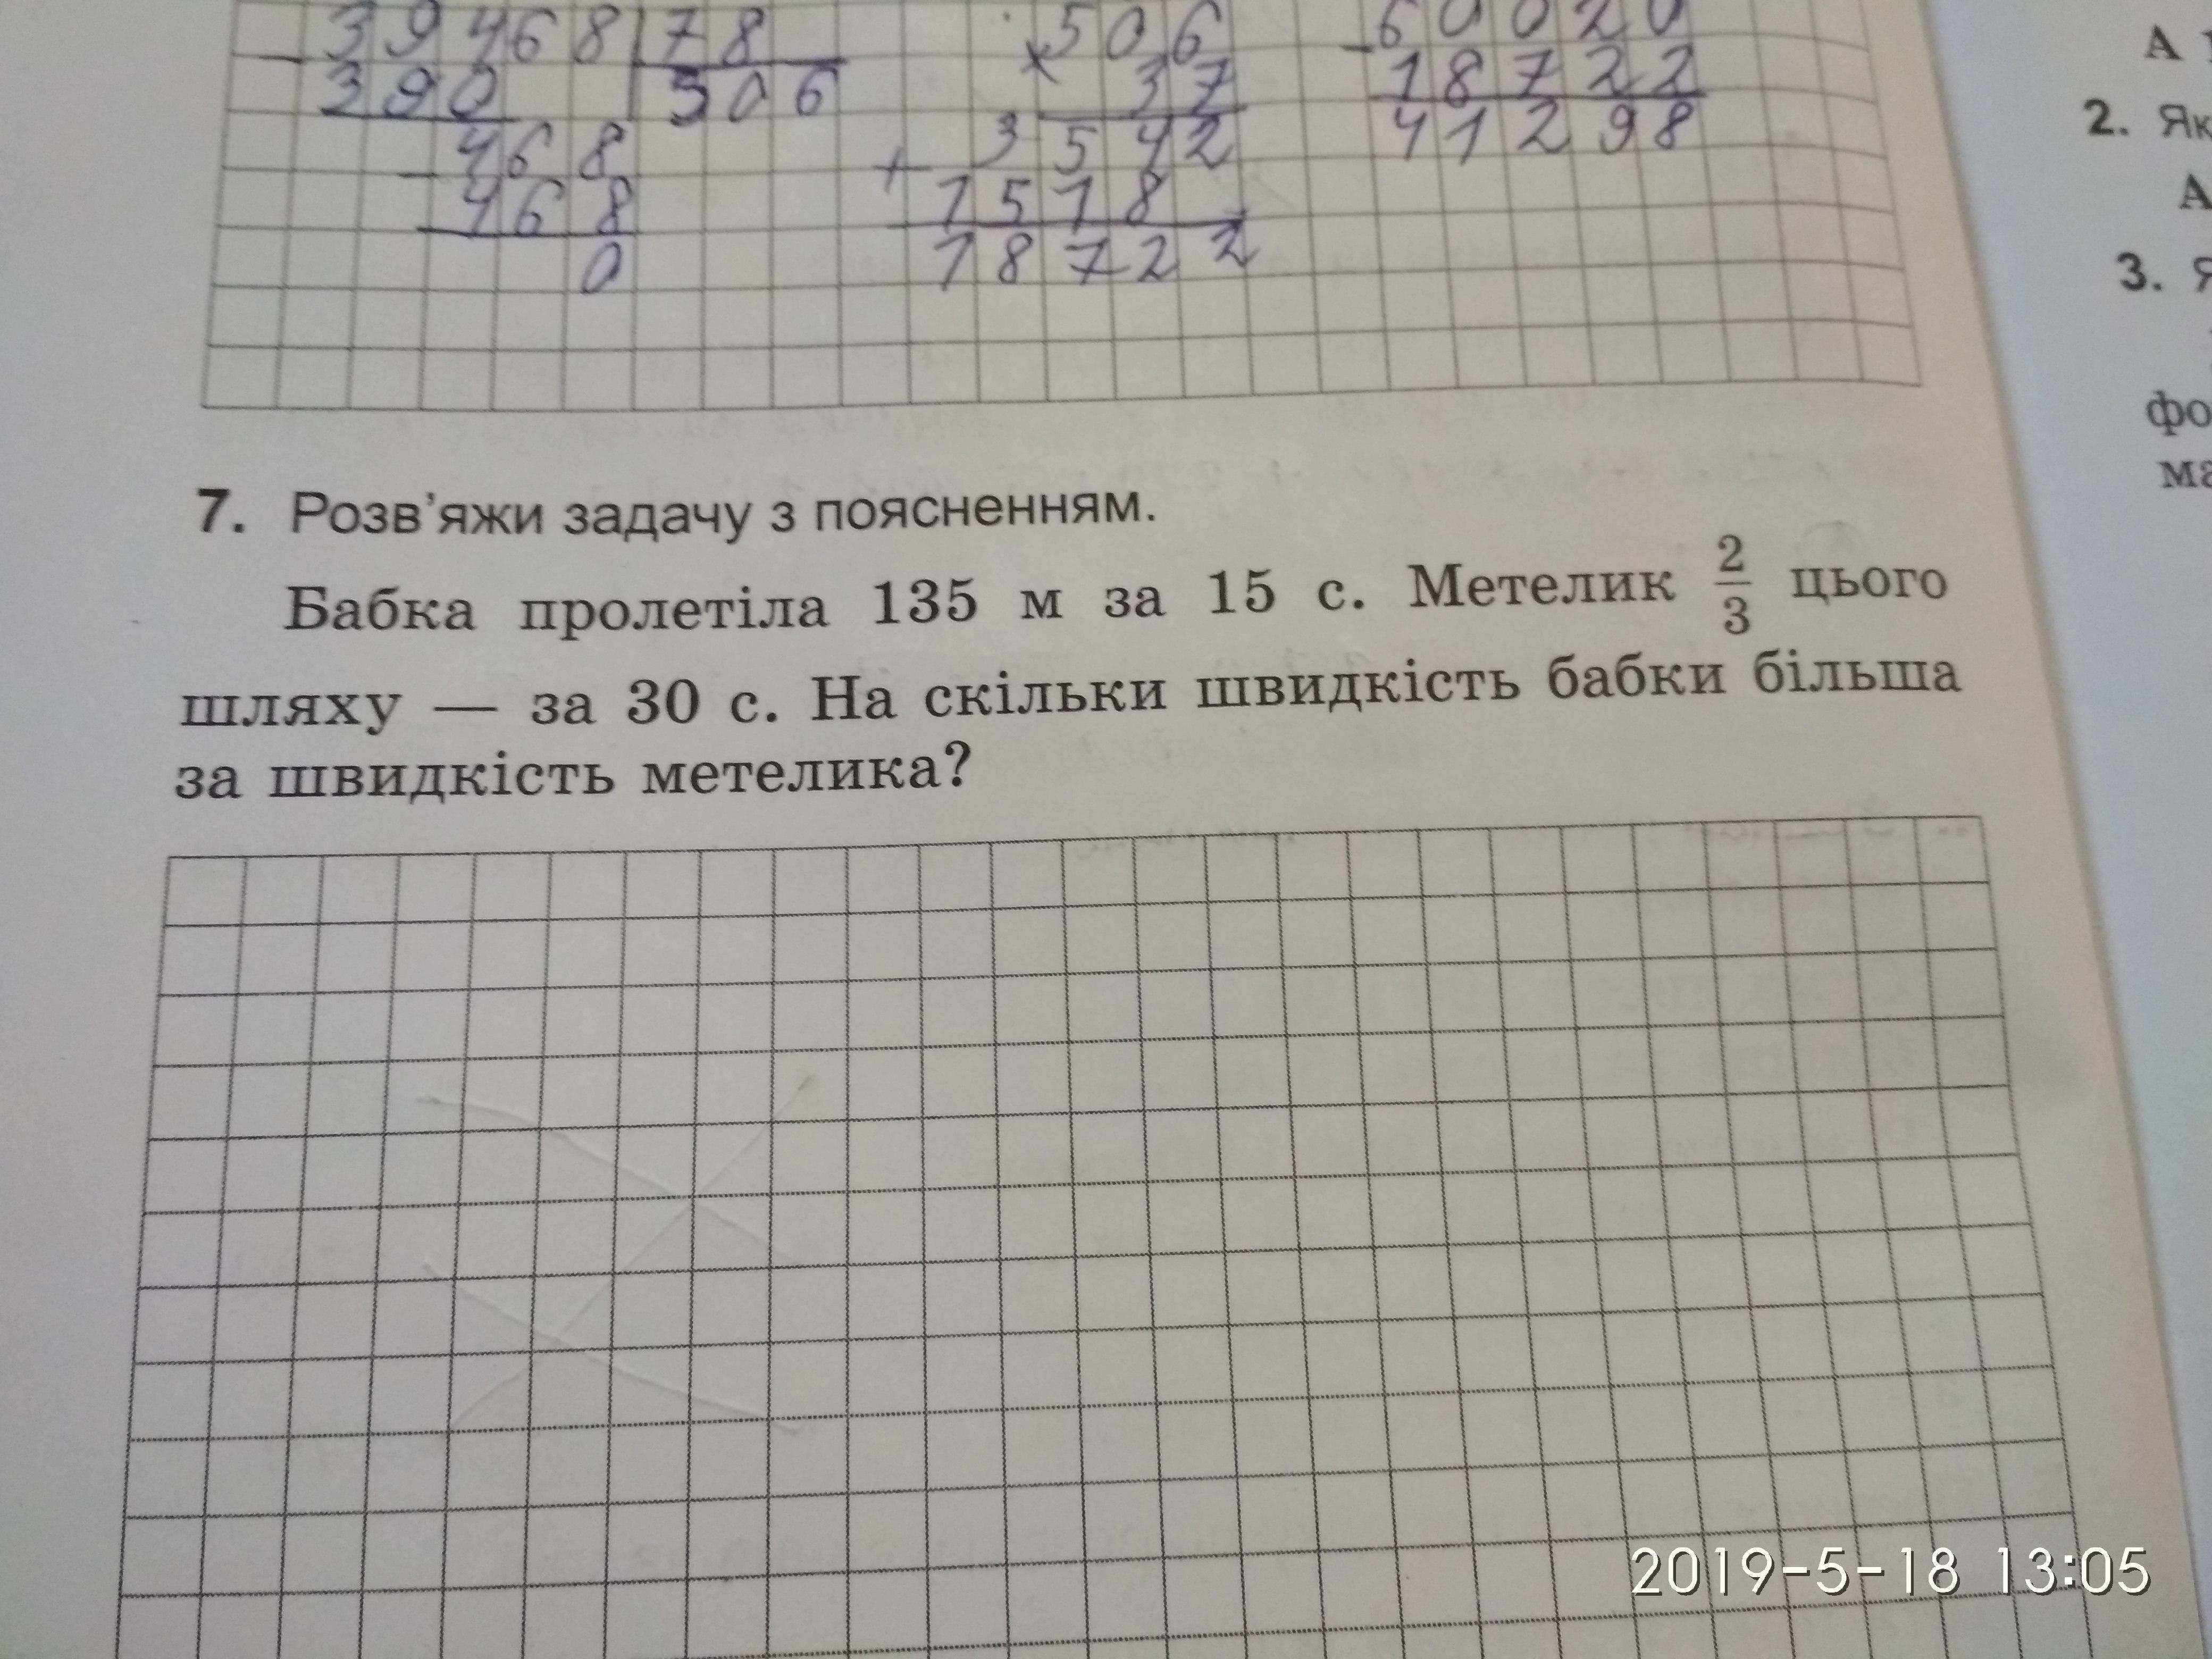 39468 78
390 506
468
468
0
× 506
37
+ 3542
1518
18722
− 60020
18722
41298
7. Розв’яжи задачу з поясненням.
Бабка пролетіла 135 м за 15 с. Метелик 2/3 цього
шляху — за 30 с. На скільки швидкість бабки більша
за швидкість метелика?
А
2. Як
А
3. Я
фо
ма
2019-5-18 13:05